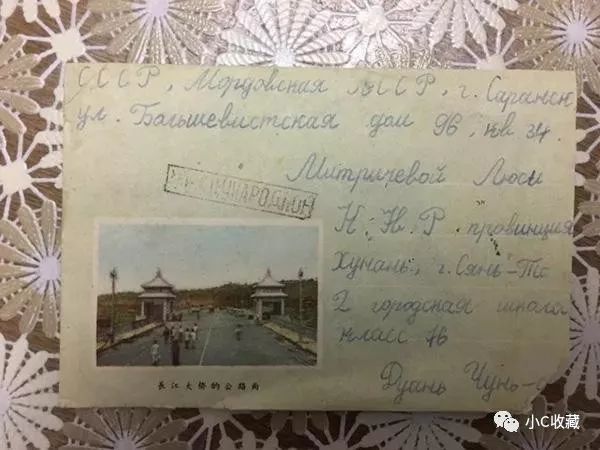 СССР, Мордовская АССР, г. Саранск
ул. Большевистская дом 96, кв 34.
Митрачевой Люси
К. Н. Р. провинция
Хунань, г. Сянь-Та
2 городская школа
класс 76
Дуань Чунь-
长江大桥的公路面
小C收藏